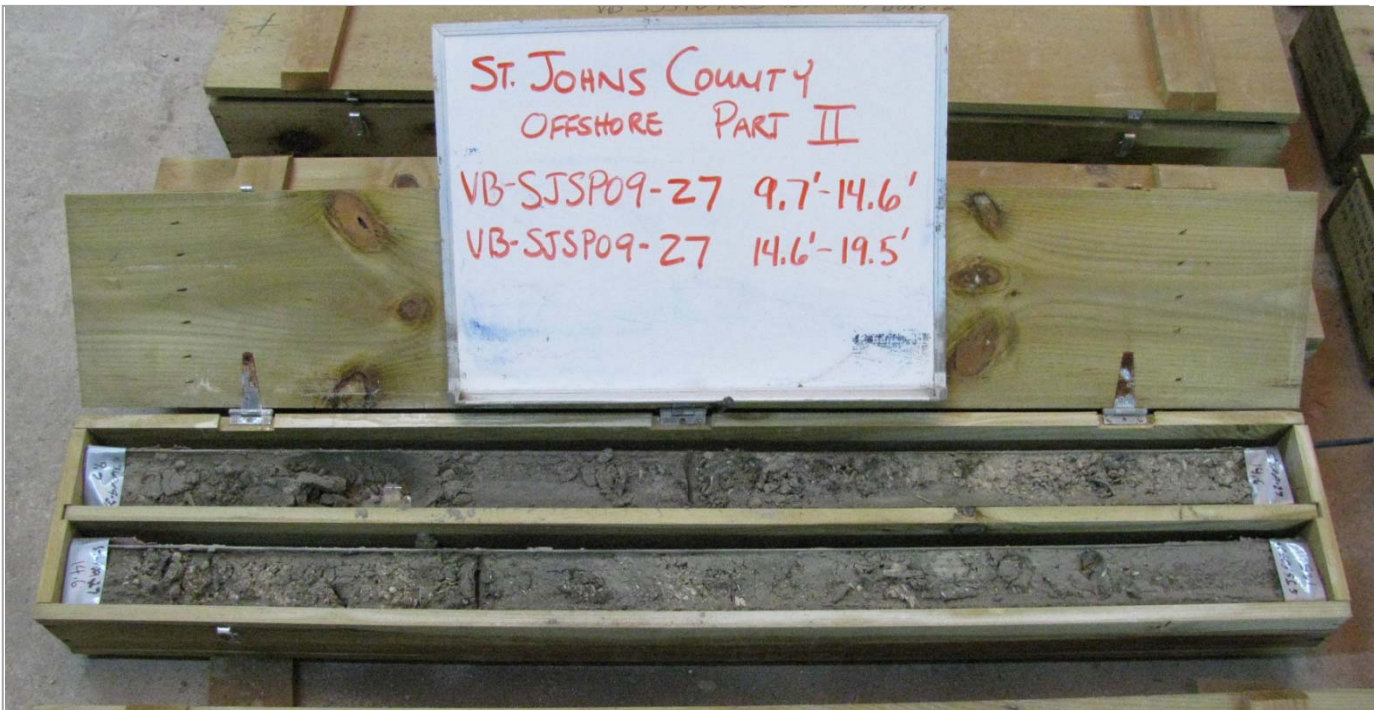 ST. JOHNS COUNTY
OFFSHORE PART II
VB-SJSP09-27 9.7'-14.6'
VB-SJSP09-27 14.6'-19.5'
14.6